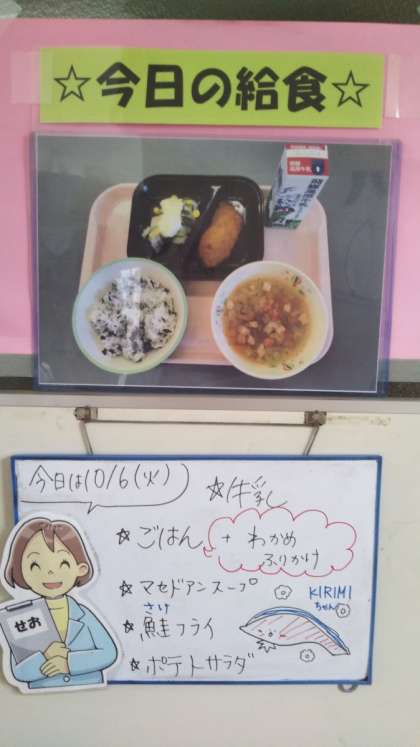 ☆今日の給食☆
今日は10/6(火)
☆牛乳
☆ごはん
+わかめ
ふりかけ
☆マセドアンスープ
さけ
☆鮭フライ
☆ポテトサラダ
KIRIMI
ちゃん
せお